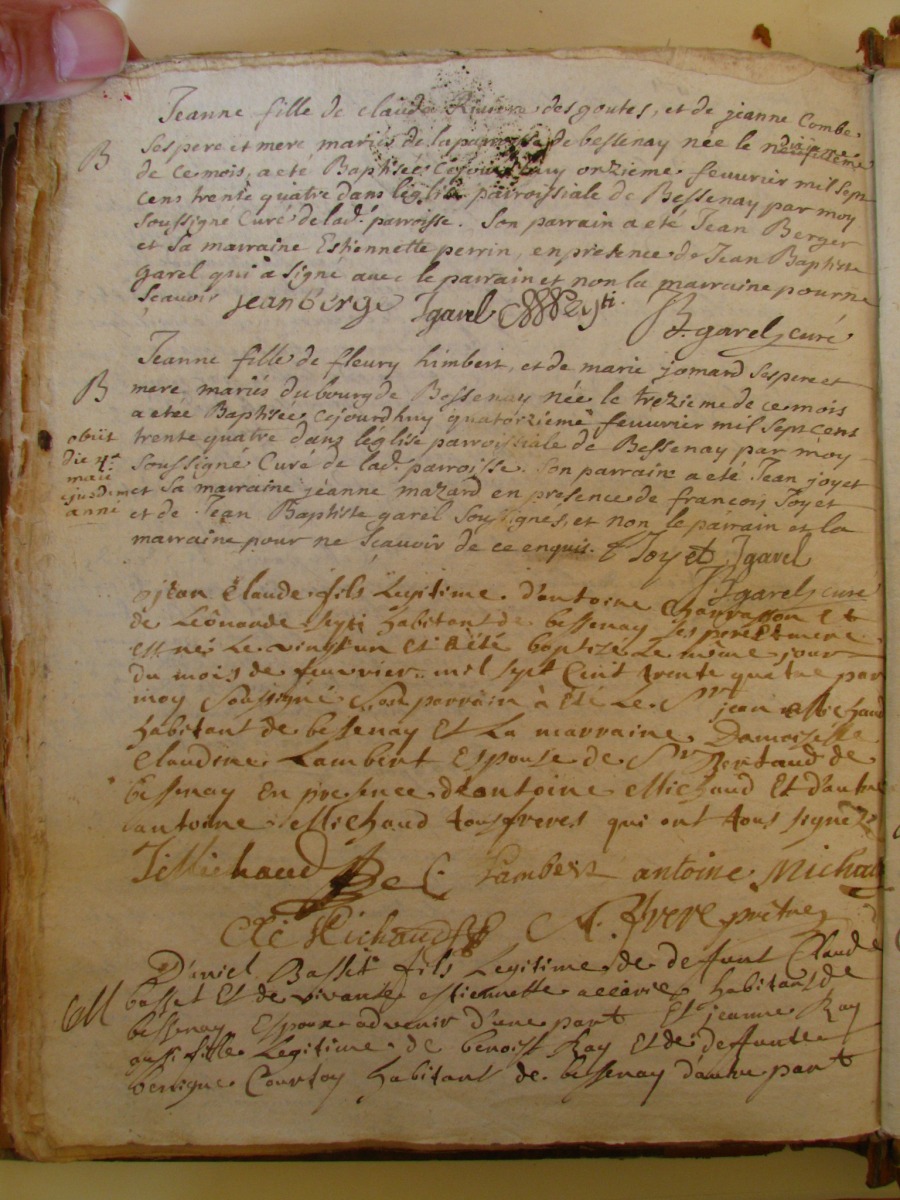 Jeanne fille de claude Riviere des goutes, et de jeanne Combe
B
ses pere et mere mariés de la parroisse de bessenay née le
de ce mois, a eté Baptisée Cejourdhuy onzieme feuvrier mil sept
cens trente quatre dans léglise parroissiale de Bessenay par moy
soussigné Curé de lad. parroisse. Son parrain a eté Jean Berger
et sa marraine Estiennette perrin, en presence de Jean Baptiste
garel qui a signé avec le parrain et non la marraine pour ne
scavoir jean berge Jgarel
B. garel curé
Jeanne fille de fleury himbert, et de marie jomard ses pere et
B
mere, mariés du bourg de Bessenay née le trezieme de ce mois
a etée Baptisée cejourdhuy quatorzieme feuvrier mil sept cens
obiit
die 4.a
maii
ejusdem
anni
trente quatre dans léglise parroissiale de Bessenay par moy
soussigné Curé de lad. parroisse. Son parrain a eté Jean joyet
et sa marraine jeanne mazard en presence de francois Joyet
et de Jean Baptiste garel soussignés, et non le parrain et la
marraine pour ne scavoir de ce enquis. f Joyet Jgarel
JBgarel curé
jean Claude fils Legitime d'antoine et
de Léonarde habitant de bessenay ses pere Et mere
est né Le vingt un et a Eté baptizé Le même jour
du mois de feuvrier mil sept Cent trente quatre par
moy soussigné son parrain à Eté Le Sr jean Michaud
habitant de bessenay Et La marraine Damoiselle
Claudine Lambert Espouse de Sr Bertaud de
bessenay En presence d'antoine Michaud Et d'autre
antoine Michaud tous freres qui ont tous signéz
JMichaud C. Lambert antoine Michau
Cle Michaud N. frere prêtre
Daniel Basset fils Legitime de deffunt Claude
M
basset Et de vivante estiennette habitant de
bessenay Espoux advenir d'une part Et jeanne Ray
aussi fille Legitime de benoist Ray Et de deffunte
benigne Courtoy habitant de bessenay d'autre part